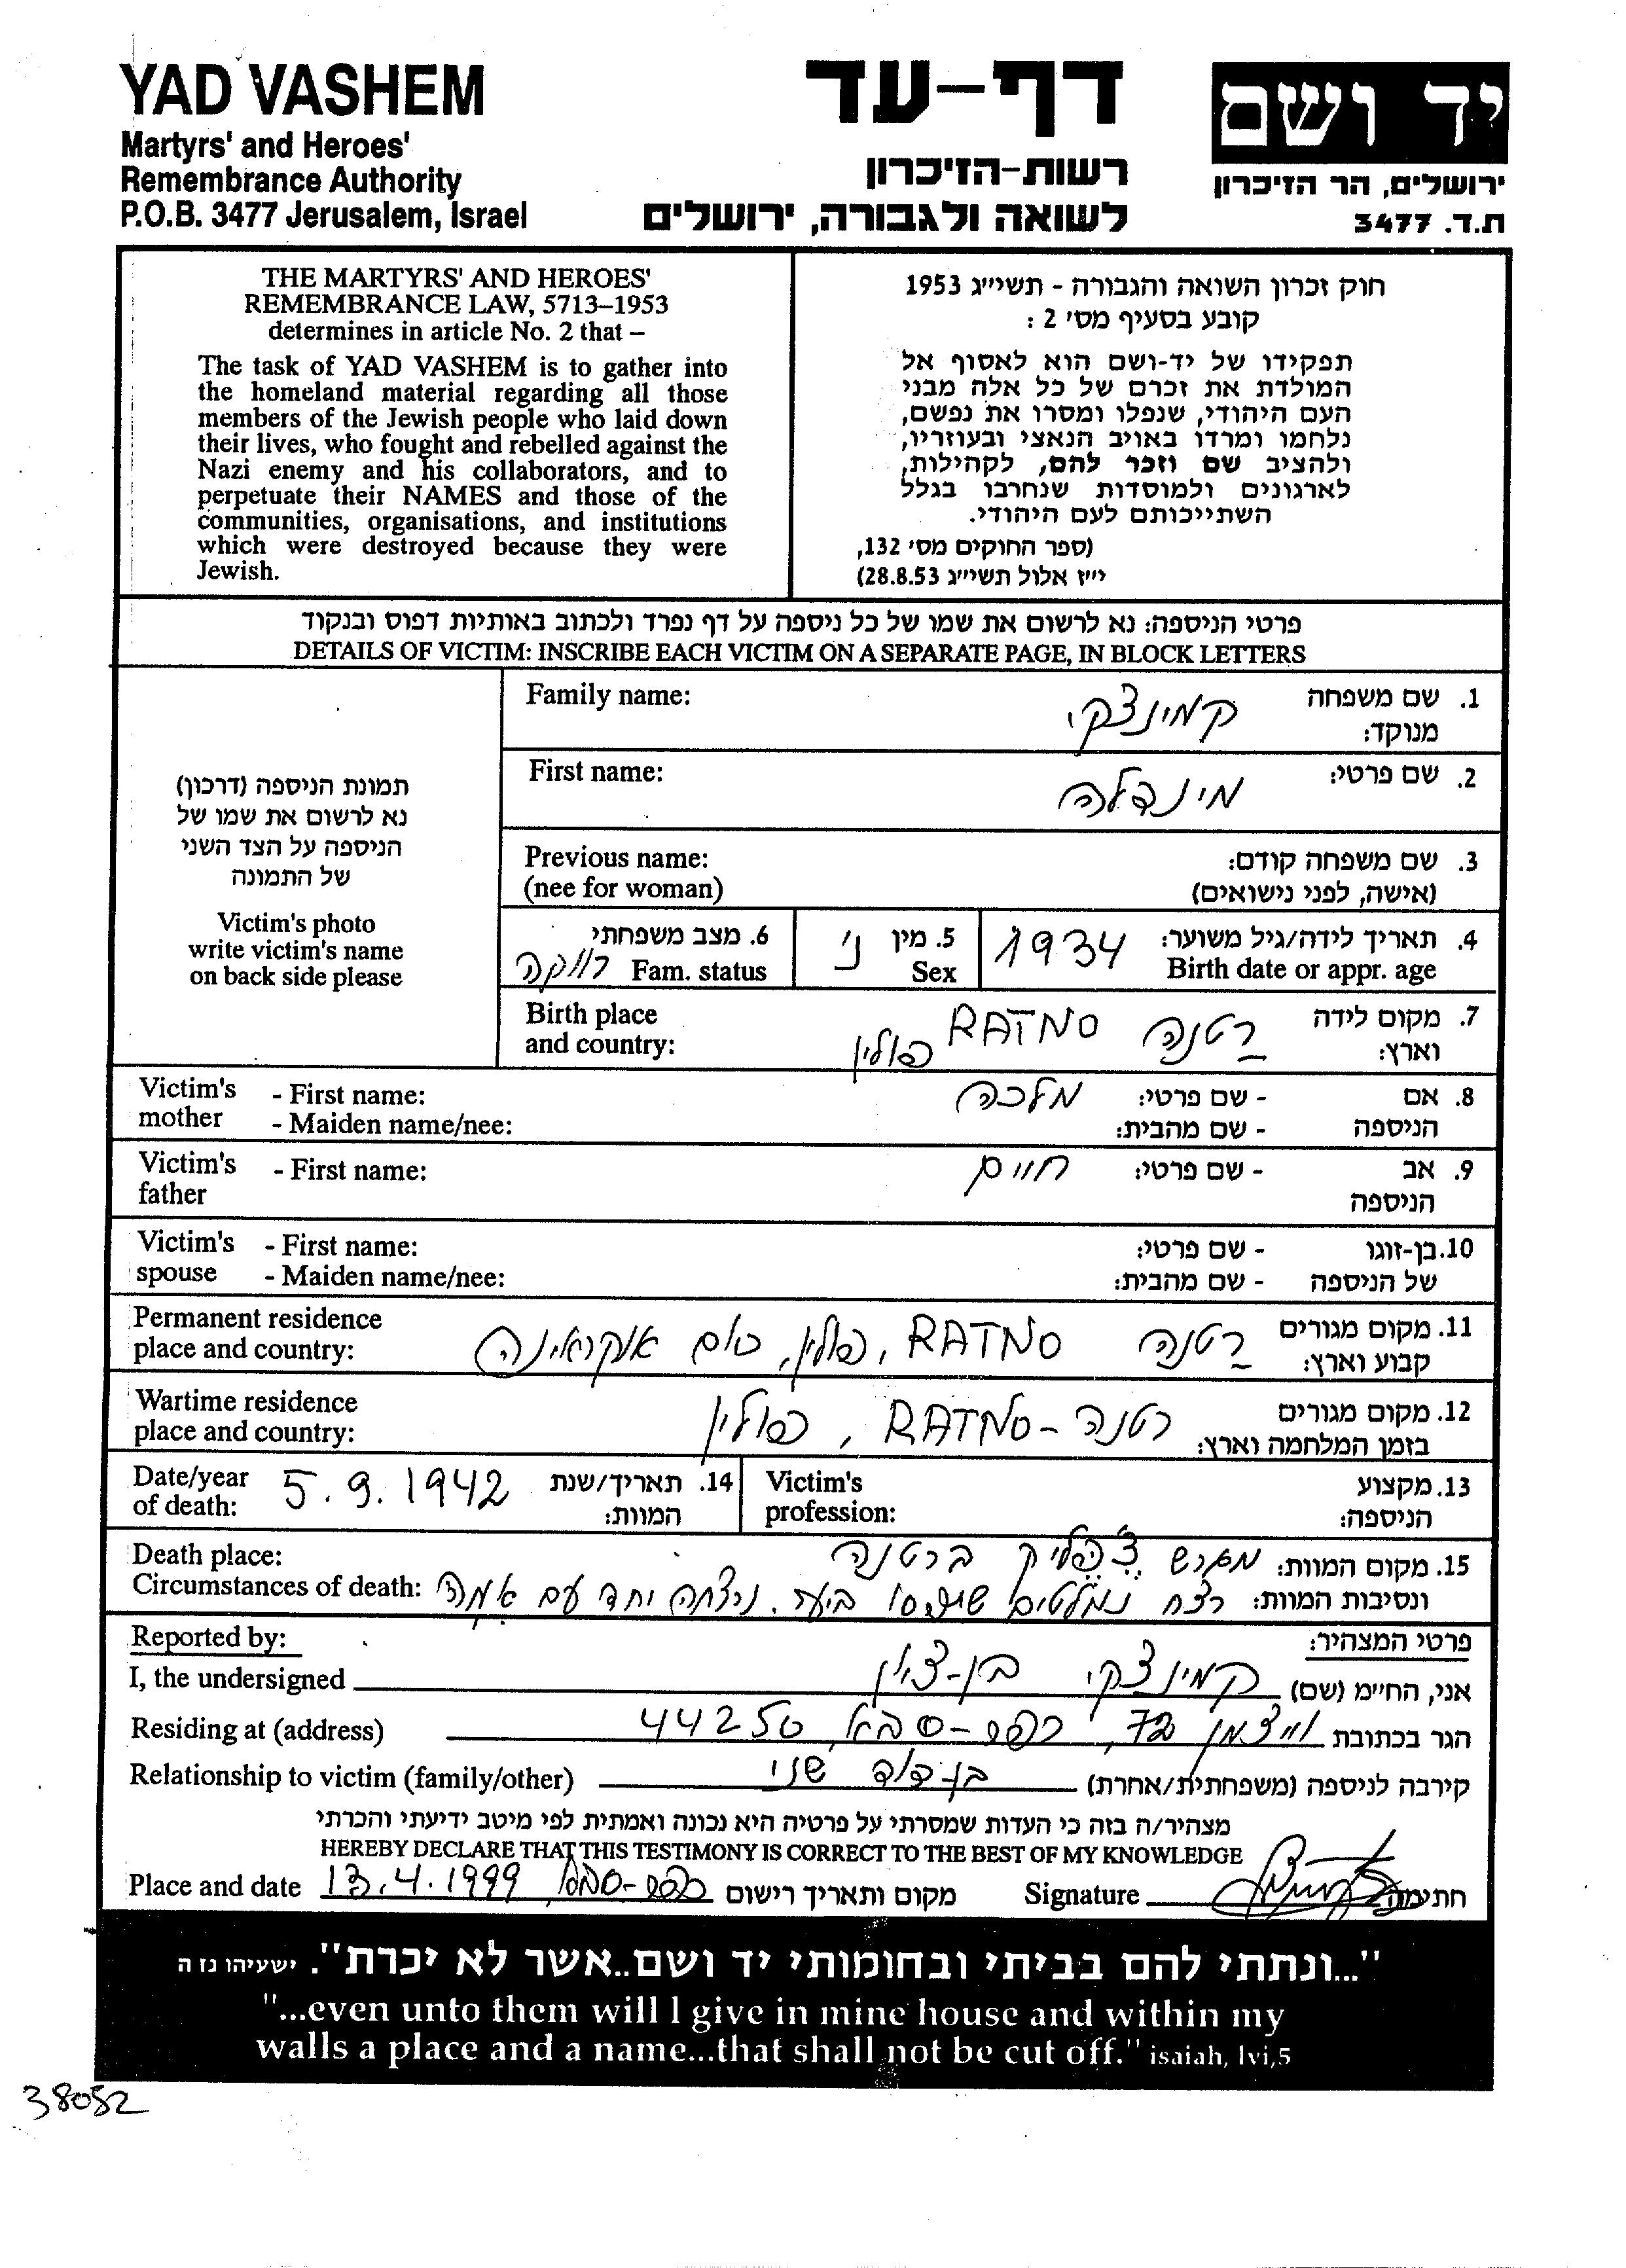 YAD VASHEM
Martyrs' and Heroes'
Remembrance Authority
P.O.B. 3477 Jerusalem, Israel
דף-עד
רשות-הזיכרון
לשואה ולגבורה, ירושלים
יד ושם
ירושלים, הר הזיכרון
ת.ד. 3477
THE MARTYRS' AND HEROES'
REMEMBRANCE LAW, 5713–1953
determines in article No. 2 that –
The task of YAD VASHEM is to gather into
the homeland material regarding all those
members of the Jewish people who laid down
their lives, who fought and rebelled against the
Nazi enemy and his collaborators, and to
perpetuate their NAMES and those of the
communities, organisations, and institutions
which were destroyed because they were
Jewish.
חוק זכרון השואה והגבורה - תשי״ג 1953
קובע בסעיף מס׳ 2 :
תפקידו של יד-ושם הוא לאסוף אל
המולדת את זכרם של כל אלה מבני
העם היהודי, שנפלו ומסרו את נפשם,
נלחמו ומרדו באויב הנאצי ובעוזריו,
ולהציב שם וזכר להם, לקהילות,
לארגונים ולמוסדות שנחרבו בגלל
השתייכותם לעם היהודי.
(ספר החוקים מס׳ 132,
י״ז אלול תשי״ג 28.8.53)
פרטי הניספה: נא לרשום את שמו של כל ניספה על דף נפרד ולכתוב באותיות דפוס ובנקוד
DETAILS OF VICTIM: INSCRIBE EACH VICTIM ON A SEPARATE PAGE, IN BLOCK LETTERS
תמונת הניספה (דרכון)
נא לרשום את שמו של
הניספה על הצד השני
של התמונה
Victim's photo
write victim's name
on back side please
1. שם משפחה קמינצקי Family name:
מנוקד:
2. שם פרטי: מינדלה First name:
3. שם משפחה קודם: Previous name:
(אישה, לפני נישואים) (nee for woman)
4. תאריך לידה/גיל משוער: 1934 5. מין נ' 6. מצב משפחתי
Birth date or appr. age Sex Fam. status רווקה
7. מקום לידה רטנה RATNO Birth place
וארץ: פולין and country:
8. אם - שם פרטי: מלכה Victim's - First name:
הניספה - שם מהבית: mother - Maiden name/nee:
9. אב - שם פרטי: חיים Victim's - First name:
הניספה father
10. בן-זוגו - שם פרטי: Victim's - First name:
של הניספה - שם מהבית: spouse - Maiden name/nee:
11. מקום מגורים רטנה RATNO, פולין, כיום אוקראינה Permanent residence
קבוע וארץ: place and country:
12. מקום מגורים רטנה-RATNO, פולין Wartime residence
בזמן המלחמה וארץ: place and country:
13. מקצוע Victim's 14. תאריך/שנת 5.9.1942 Date/year
הניספה: profession: המוות: of death:
15. מקום המוות: מגרש צ'פליק ברטנה Death place:
ונסיבות המוות: רצח נמלטים שנתפסו ביער. נרצחה יחד עם אמה Circumstances of death:
פרטי המצהיר: Reported by:
אני, החיימ (שם) קמינצקי בן-ציון I, the undersigned
הגר בכתובת ויצמן 72, כפר-סבא, 44250 Residing at (address)
קירבה לניספה (משפחתית/אחרת) בן-דוד שני Relationship to victim (family/other)
מצהיר/ה בזה כי העדות שמסרתי על פרטיה היא נכונה ואמתית לפי מיטב ידיעתי והכרתי
HEREBY DECLARE THAT THIS TESTIMONY IS CORRECT TO THE BEST OF MY KNOWLEDGE
Place and date 13.4.1999 כפר-סבא, מקום ותאריך רישום Signature חתימה
"...ונתתי להם בביתי ובחומותי יד ושם..אשר לא יכרת". ישעיהו נז ה
"...even unto them will I give in mine house and within my
walls a place and a name...that shall not be cut off." isaiah, lvi,5
38052